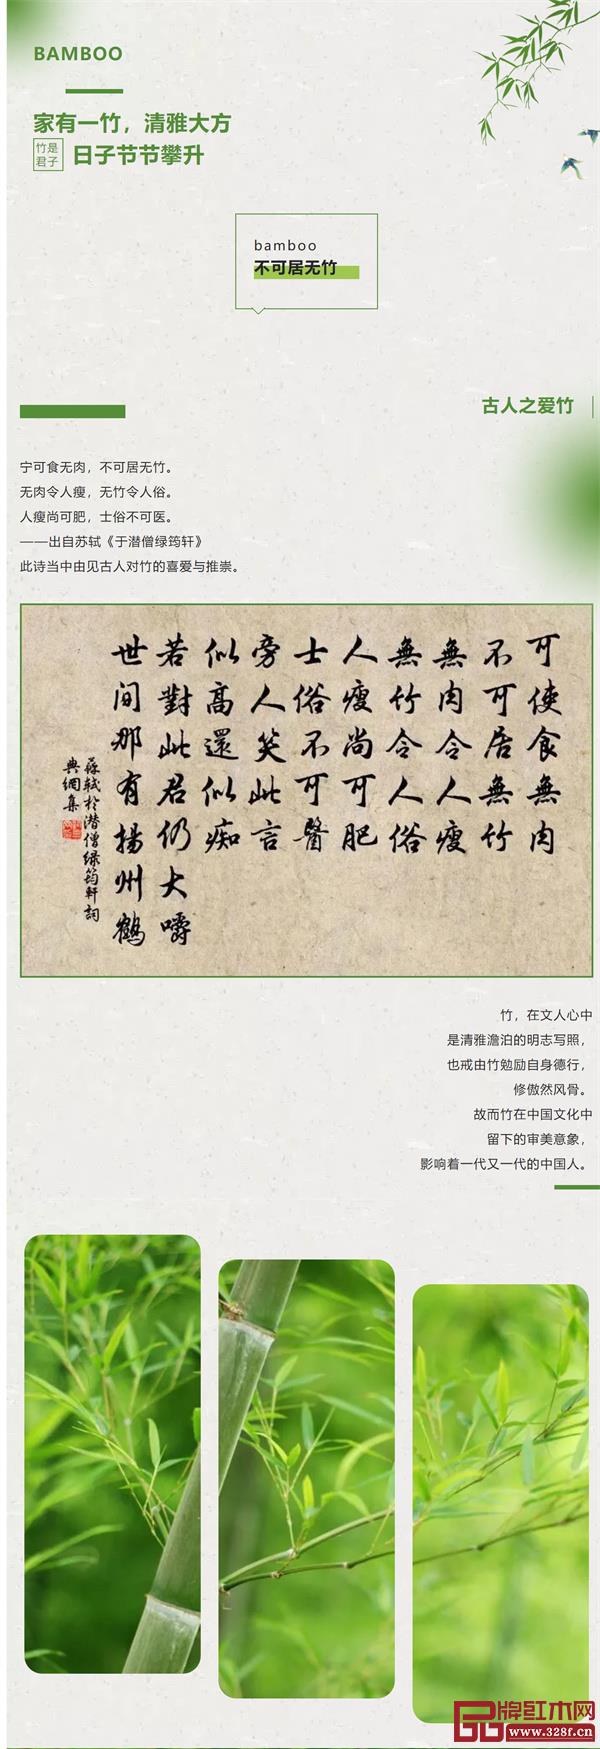 BAMBOO
家有一竹，清雅大方
竹是
君子
日子节节攀升
bamboo
不可居无竹
古人之爱竹
宁可食无肉，不可居无竹。
无肉令人瘦，无竹令人俗。
人瘦尚可肥，士俗不可医。
——出自苏轼《于潜僧绿筠轩》
此诗当中由见古人对竹的喜爱与推崇。
可使食無肉
不可居無竹
無肉令人瘦
無竹令人俗
人瘦尚可肥
士俗不可醫
旁人笑此言
似高還似痴
若對此君仍大嚼
世间那有揚州鶴
蘇軾於潜僧绿筠軒詞
興網集
竹，在文人心中
是清雅澹泊的明志写照，
也戒由竹勉励自身德行，
修傲然风骨。
故而竹在中国文化中
留下的审美意象，
影响着一代又一代的中国人。
品牌红木网
www.328f.cn